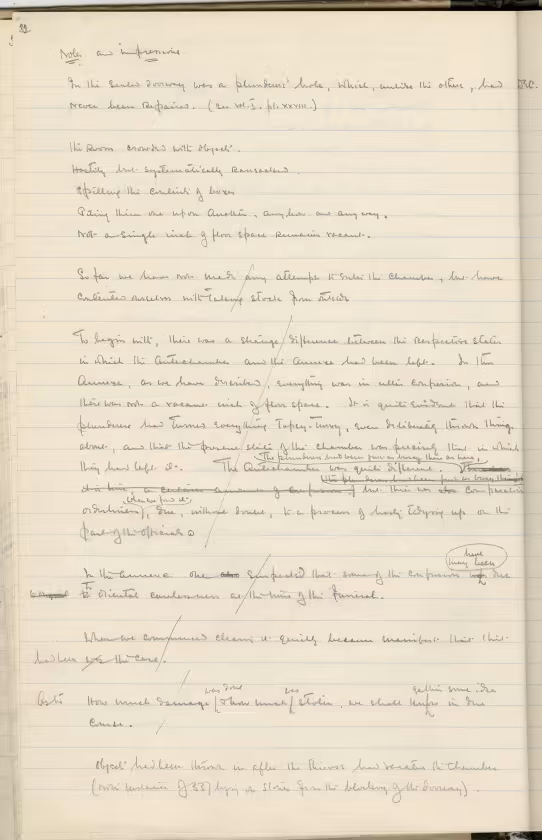 Notes and impressions
In the sealed doorway was a plunderers' hole, which, unlike the others, had
never been repaired. (See Vol. I. pl. XXVIII.)
The Room crowded with objects.
Hastily but systematically ransacked.
Spilling the contents of boxes
Piling them one upon another, anyhow and anyway.
Not a single inch of floor space remains vacant.
So far we have not made any attempt to enter the chamber, but have
contented ourselves with taking stock from outside
To begin with, there was a strange difference between the respective states
in which the Antechamber and the Annexe had been left. In the
Annexe, as we have described, everything was in utter confusion, and
there was not a vacant inch of floor space. It is quite evident that the
plunderers had turned everything topsy-turvy, even deliberately thrown things
about, and that the present state of the chamber was precisely that in which
they had left it. The Antechamber was quite different.
The plunderers had been just as busy there as here,
but there was comparative
orderliness, due, without doubt, to a process of hasty tidying up on the
part of the officials.
In the Annexe one suspected that some of the confusion may have been due
to Oriental carelessness at the time of the funeral.
When we commenced clearing it quickly became manifest that this
had been the case.
How much damage was done & how much was stolen, we shall get some idea in due
course.
Objects had been thrown in after the thieves had vacated the chamber
on stones from the blocking of the doorway).